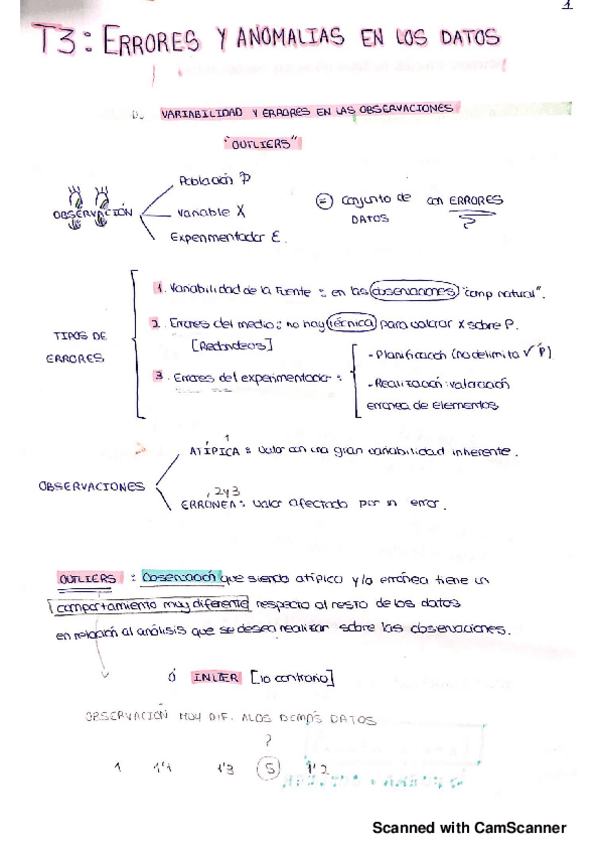 1
T3: ERRORES Y ANOMALIAS EN LOS DATOS
1. VARIABILIDAD Y ERRORES EN LAS OBSERVACIONES
"OUTLIERS"
OBSERVACIÓN
Población P
Variable X
Experimentador E.
= Conjunto de DATOS con ERRORES
?
TIPOS DE ERRORES
1. Variabilidad de la Fuente: en las observaciones "comp natural".
2. Errores del medio: no hay técnica para valorar X sobre P.
[Redondeos]
3. Errores del experimentador:
- Planificación (no delimito ✓ P)
- Realización: valoración
errónea de elementos
OBSERVACIONES
1
ATÍPICA: valor con una gran variabilidad inherente.
2y3
ERRÓNEA: valor afectado por un error.
OUTLIERS: Observación que siendo atípica y/o errónea tiene un
comportamiento muy diferente respecto al resto de los datos
en relación al análisis que se desea realizar sobre las observaciones.
ó INLIER [lo contrario]
OBSERVACIÓN MUY DIF. A LOS DEMÁS DATOS
?
1 1'1 1'3 5 1'2
Scanned with CamScanner